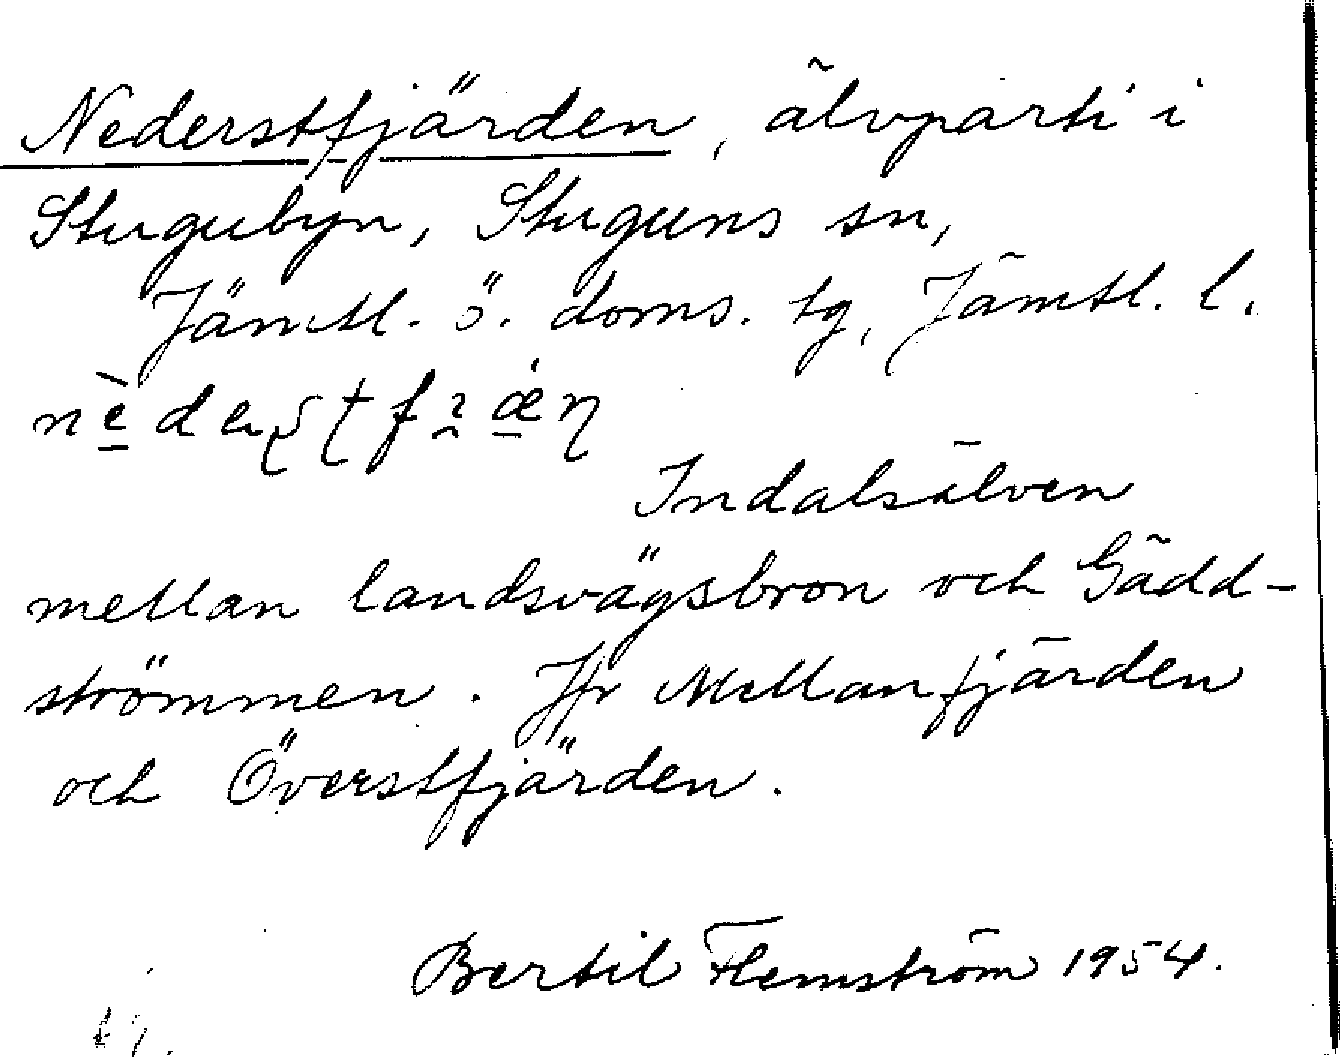 Nederstfjärden, älvparti i
Stugubyn, Stuguns sn,
Jämtl. ö. doms. tg, Jämtl. l.
Indalsälven
mellan landsvägsbron och Gädd-
strömmen. Jfr Mellanfjärden
och Överstfjärden.
Bertil Flemström 1954.